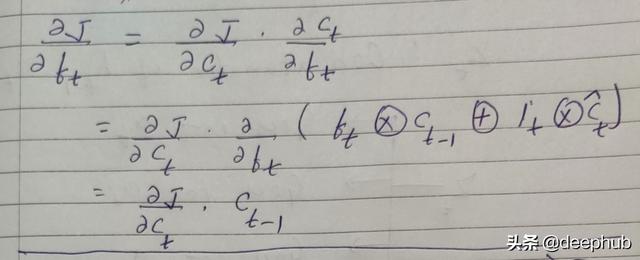 ∂J/∂f_t = ∂J/∂C_t · ∂C_t/∂f_t
= ∂J/∂C_t · ∂/∂f_t ( f_t ⊗ C_{t-1} ⊕ i_t ⊗ Ĉ_t )
= ∂J/∂C_t · C_{t-1}
头条 @deephub